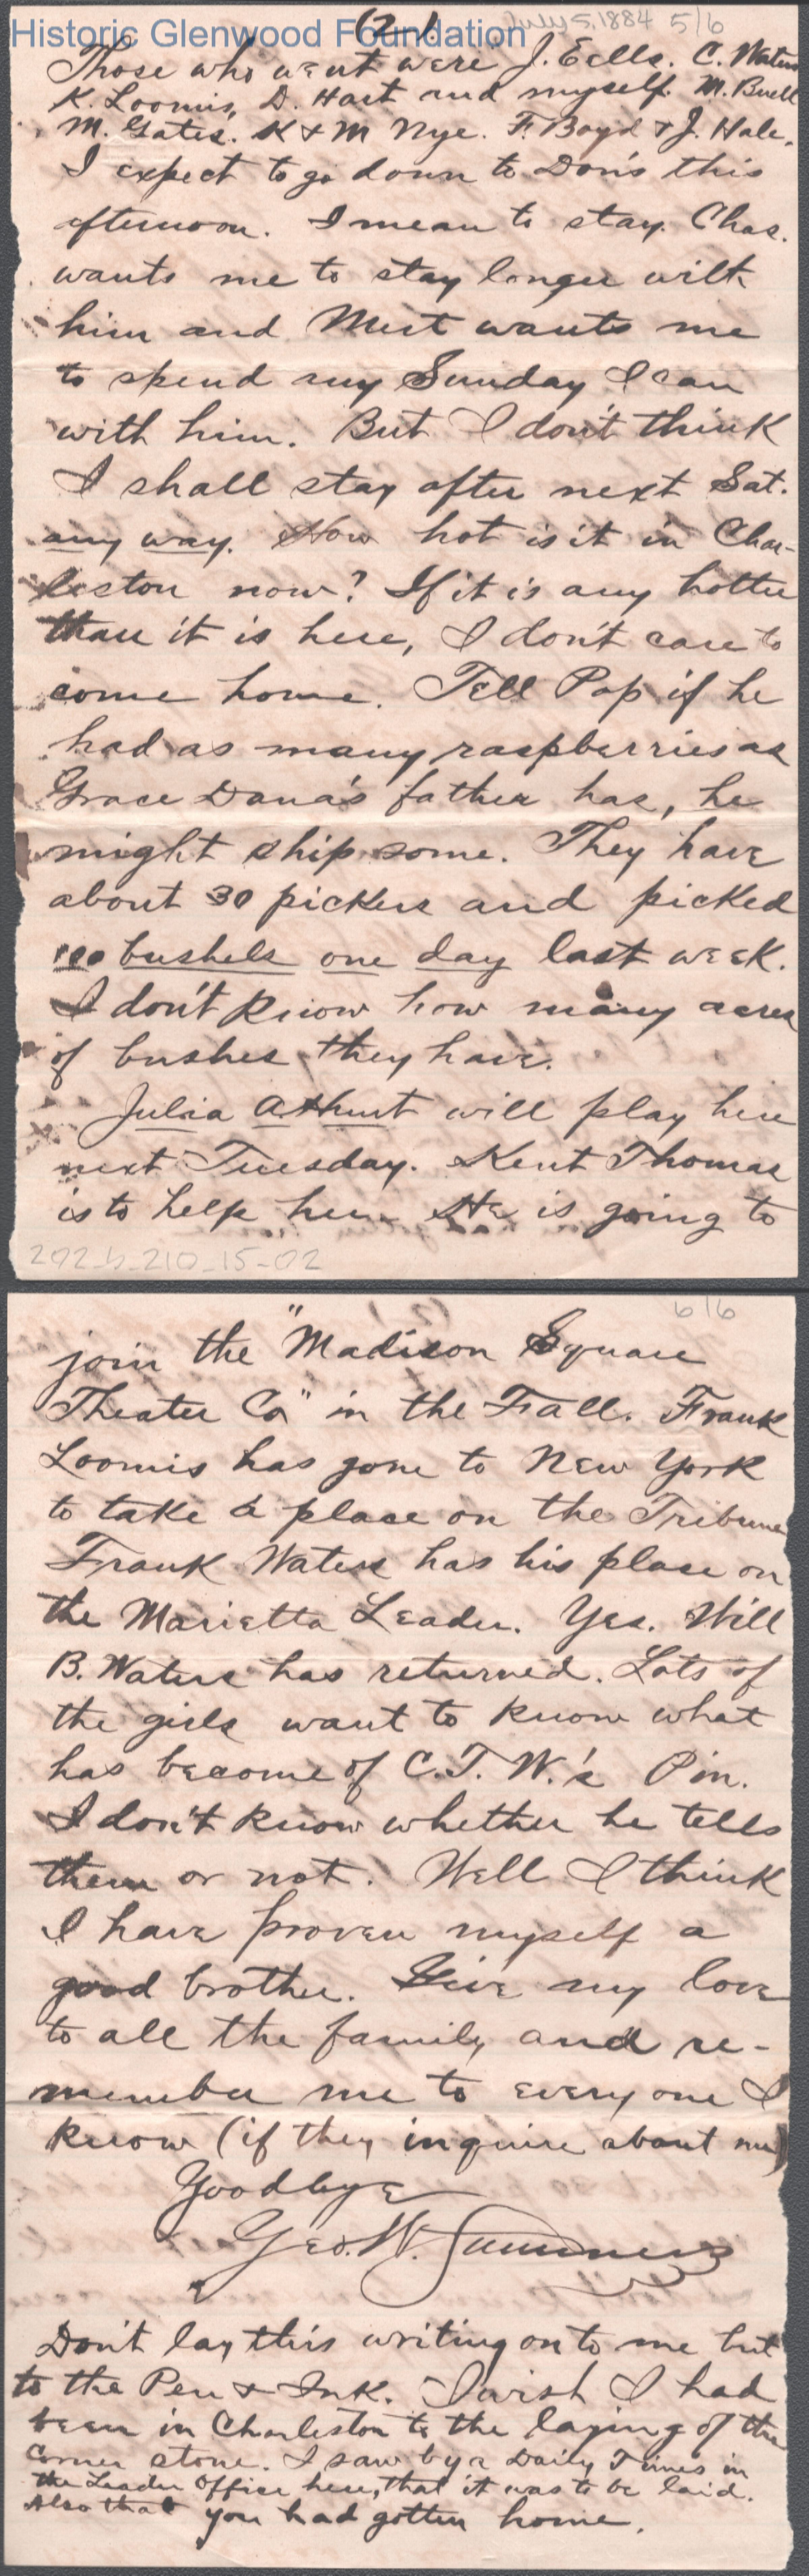 Historic Glenwood Foundation
(2)
July 5, 1884 5/6
Those who went were J. Eells. C. Waters
K. Loomis, D. Hart and myself. M. Buell
M. Gates. K & M Nye. F. Boyd & J. Hale.
I expect to go down to Don's this
afternoon. I mean to stay. Chas.
wants me to stay longer with
him and Mert wants me
to spend my Sunday I can
with him. But I don't think
I shall stay after next Sat.
any way. How hot is it in Char-
leston now? If it is any hotter
than it is here, I don't care to
come home. Tell Pap if he
had as many raspberries as
Grace Dana's father has, he
might ship some. They have
about 30 pickers and picked
100 bushels one day last week.
I don't know how many acres
of bushes they have.
Julia will play here
next Tuesday. Kent Thomas
is to help her. He is going to
202-b-210-15-02
6/6
join the "Madison Square
Theater Co" in the Fall. Frank
Loomis has gone to New York
to take a place on the Tribune
Frank Waters has his place on
the Marietta Leader. Yes. Will
B. Waters has returned. Lots of
the girls want to know what
has become of C.T.W.'s Pin.
I don't know whether he tells
them or not. Well I think
I have proven myself a
good brother. Give my love
to all the family and re-
member me to every one I
know (if they inquire about me)
Goodbye
Geo. W. Summers
Don't lay this writing on to me but
to the Pen & Ink. I wish I had
been in Charleston to the laying of the
Corner stone. I saw by a Daily Times in
the Leader Office here, that it was to be laid.
Also that you had gotten home.